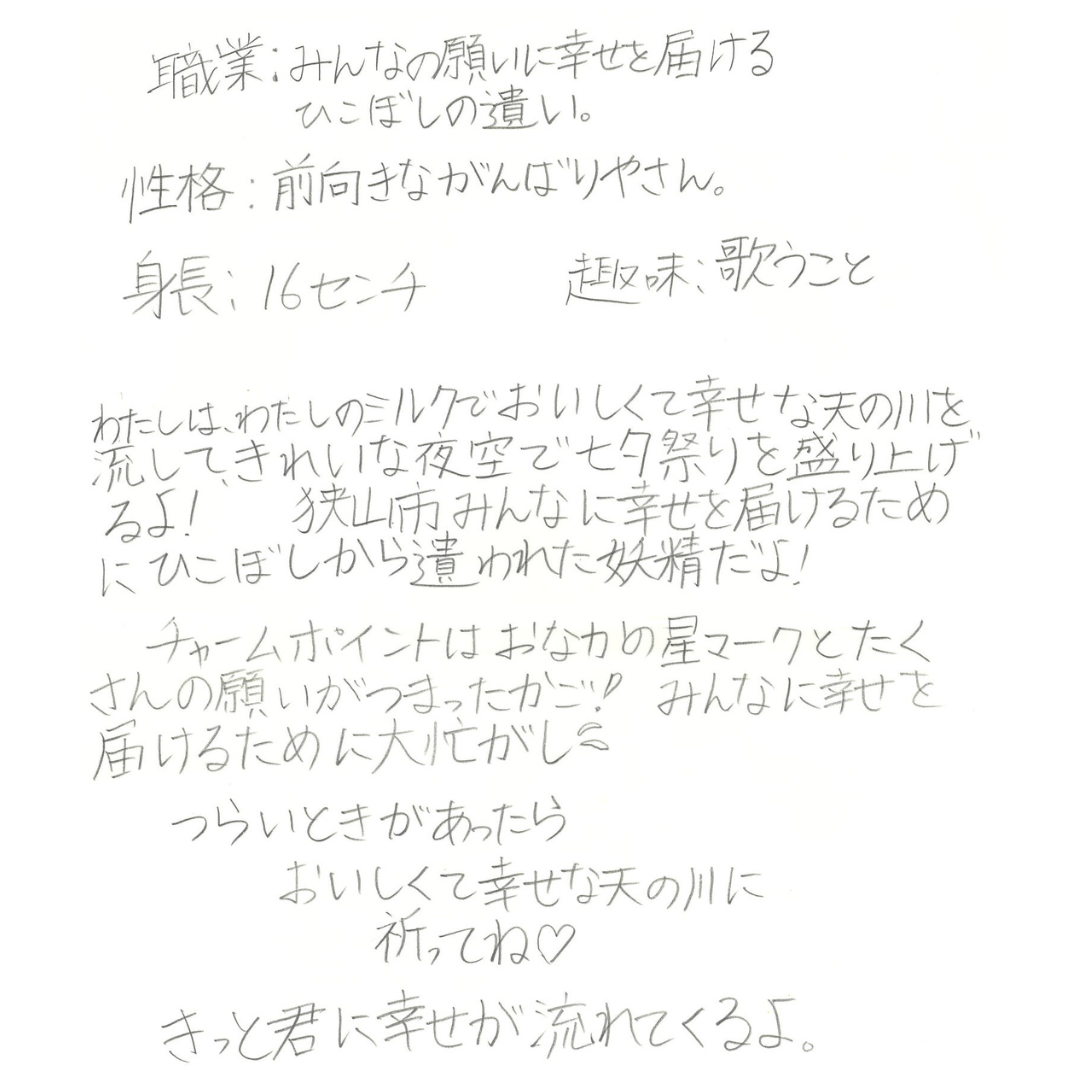 職業:みんなの願いに幸せを届ける
ひこぼしの遺い。
性格:前向きながんばりやさん。
身長:16センチ 趣味:歌うこと
わたしは、わたしのミルクでおいしくて幸せな天の川を
流して、きれいな夜空で七夕祭りを盛り上げ
るよ! 狭山市みんなに幸せを届けるため
にひこぼしから遺われた妖精だよ!
チャームポイントはおなかの星マークとたく
さんの願いがつまったかご!! みんなに幸せを
届けるために大忙がし
つらいときがあったら
おいしくて幸せな天の川に
祈ってね♡
きっと君に幸せが流れてくるよ。